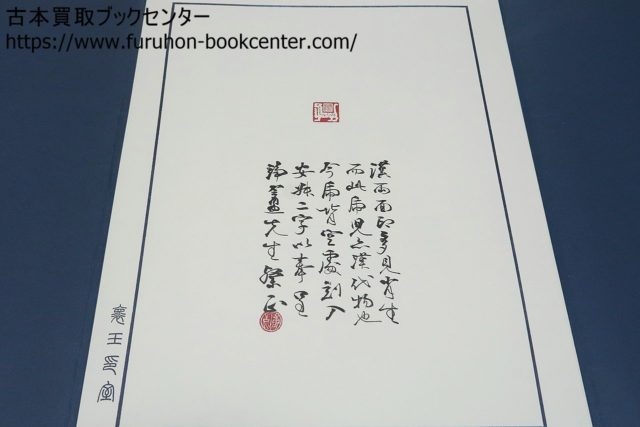 古本買取ブックセンター
https://www.furuhon-bookcenter.com/
漢兩面印多見肖生
而此扁亦漢代物也
今扁背空處刻入
安二字以奉呈
盦先生正
王印室